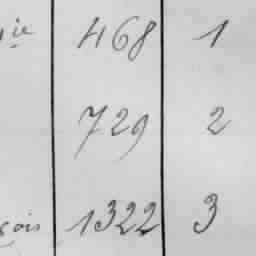 ie 468 1
729 2
çois 1322 3